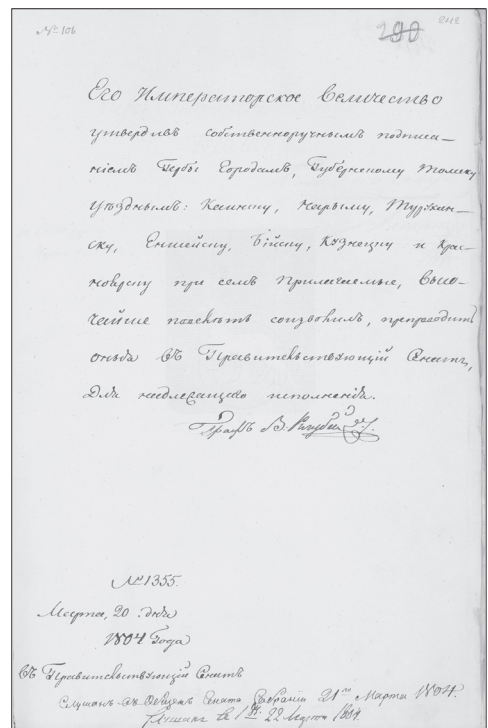 № 106
290
Его Императорское Величество
утвердивъ собственноручнымъ подписа-
ніемъ Гербы Городамъ, Губернскому Томску
уѣзднымъ: Каинску, Нарыму, Турухан-
ску, Енисейску, Бійску, Кузнецку и Крас-
ноярску при семъ прилагаемые, Высо-
чайше повелѣть соизволилъ, препроводить
оныя въ Правительствующій Сенатъ,
для надлежащаго исполненія.
Графъ В. Кочубей
№ 1355.
Марта, 20 дня
1804 Года
Въ Правительствующій Сенатъ
Слушанъ въ Общемъ Сената Собраніи 21го Марта 1804.
22 Марта 1804.